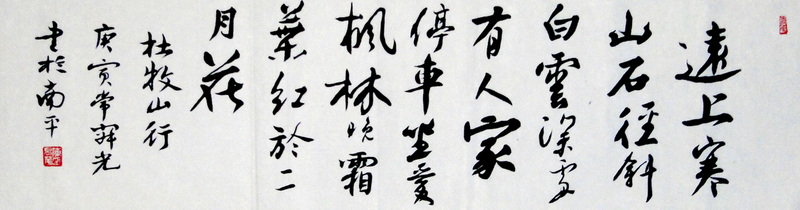 遠上寒
山石徑斜
白雲深處
有人家
停車坐愛
楓林晚霜
葉紅於二
月花
杜牧山行
庚寅常光
书於南平